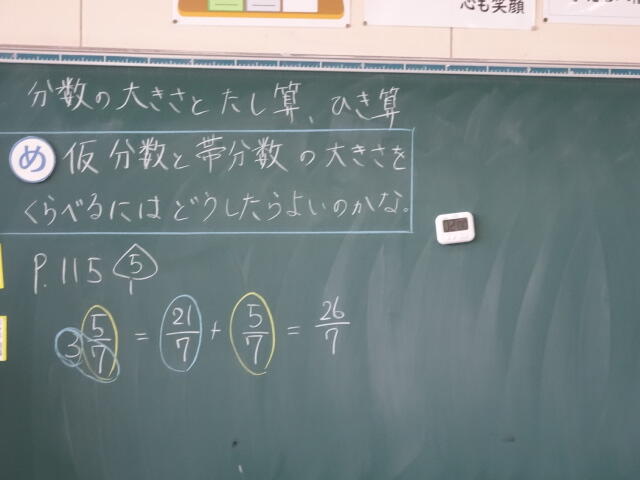 心も笑顔
分数の大きさとたし算、ひき算
め 仮分数と帯分数の大きさを
くらべるにはどうしたらよいのかな。
P.115 5
3 5/7 = 21/7 + 5/7 = 26/7